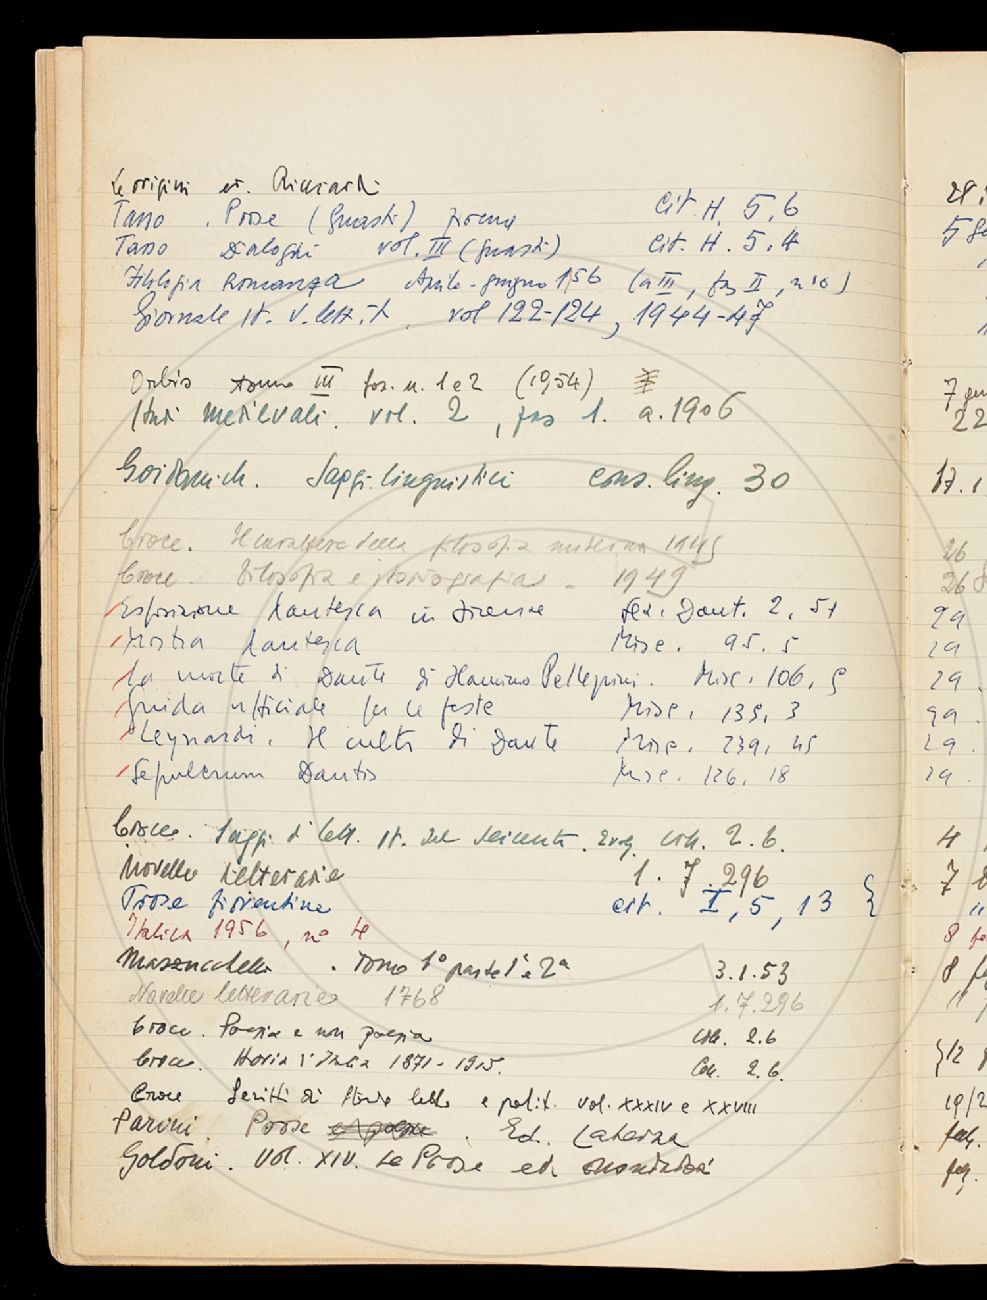 Le origini ed. Ricciardi
Tasso . Prose (Guasti) poema cit. H. 5.6
Tasso Dialoghi vol. III (Guasti) cit. H. 5.4
Filologia Romanza Aprile-giugno 1956 (a III, fas II, n° 10)
Giornale st. d. lett. it. vol 122-124, 1944-47
Orbis tomo III fas. n. 1 e 2 (1954)
Studi medievali. vol. 2, fas 1. a. 1906
Goidanich. Saggi linguistici cons. ling. 30
Croce. Il carattere della filosofia moderna 1945
Croce. Filosofia e storiografia - 1949
Esposizione dantesca in Firenze Sez. Dant. 2. 51
Mostra dantesca Misc. 95. 5
La morte di Dante di Flaminio Pellegrini. Misc. 106. 9
Guida ufficiale per le feste Misc. 139. 3
Leynardi. Il culto di Dante Misc. 239. 45
Sepulcrum Dantis Misc. 126. 18
Croce. Saggi d lett. it. del seicento. coll. 2. 6.
Novelle Letterarie 1. 7. 296
Prose fiorentine cit. I, 5, 13 }
Italica 1956, n° 4
Mazzucchelli . Tomo 1° parte 1ª e 2ª 3.1.53
Novelle letterarie 1768 1.7.296
Croce. Poesia e non poesia coll. 2.6
Croce. Storia d'Italia 1871-1915. Coll. 2.6.
Croce Scritti di storia lett. e polit. vol. XXXIV e XXVIII
Parini Prose e poesie . Ed. Laterza
Goldoni. Vol. XIV. Le Prose ed. Mondadori
5
7
22
17. 1
26
26
29
29
29.
29.
29.
29.
4
7
"
8
8
"
12
19/2